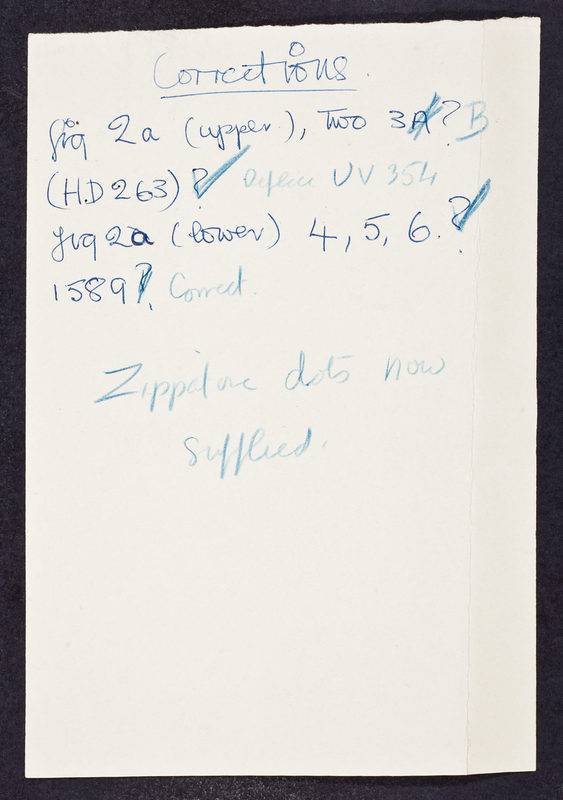 Corrections.
fig 2a (upper), Two 3A? B
(H.D 263)? UV 354
fig 2a (lower) 4, 5, 6.?
1589?. Correct.
Zippatone dots now
supplied.